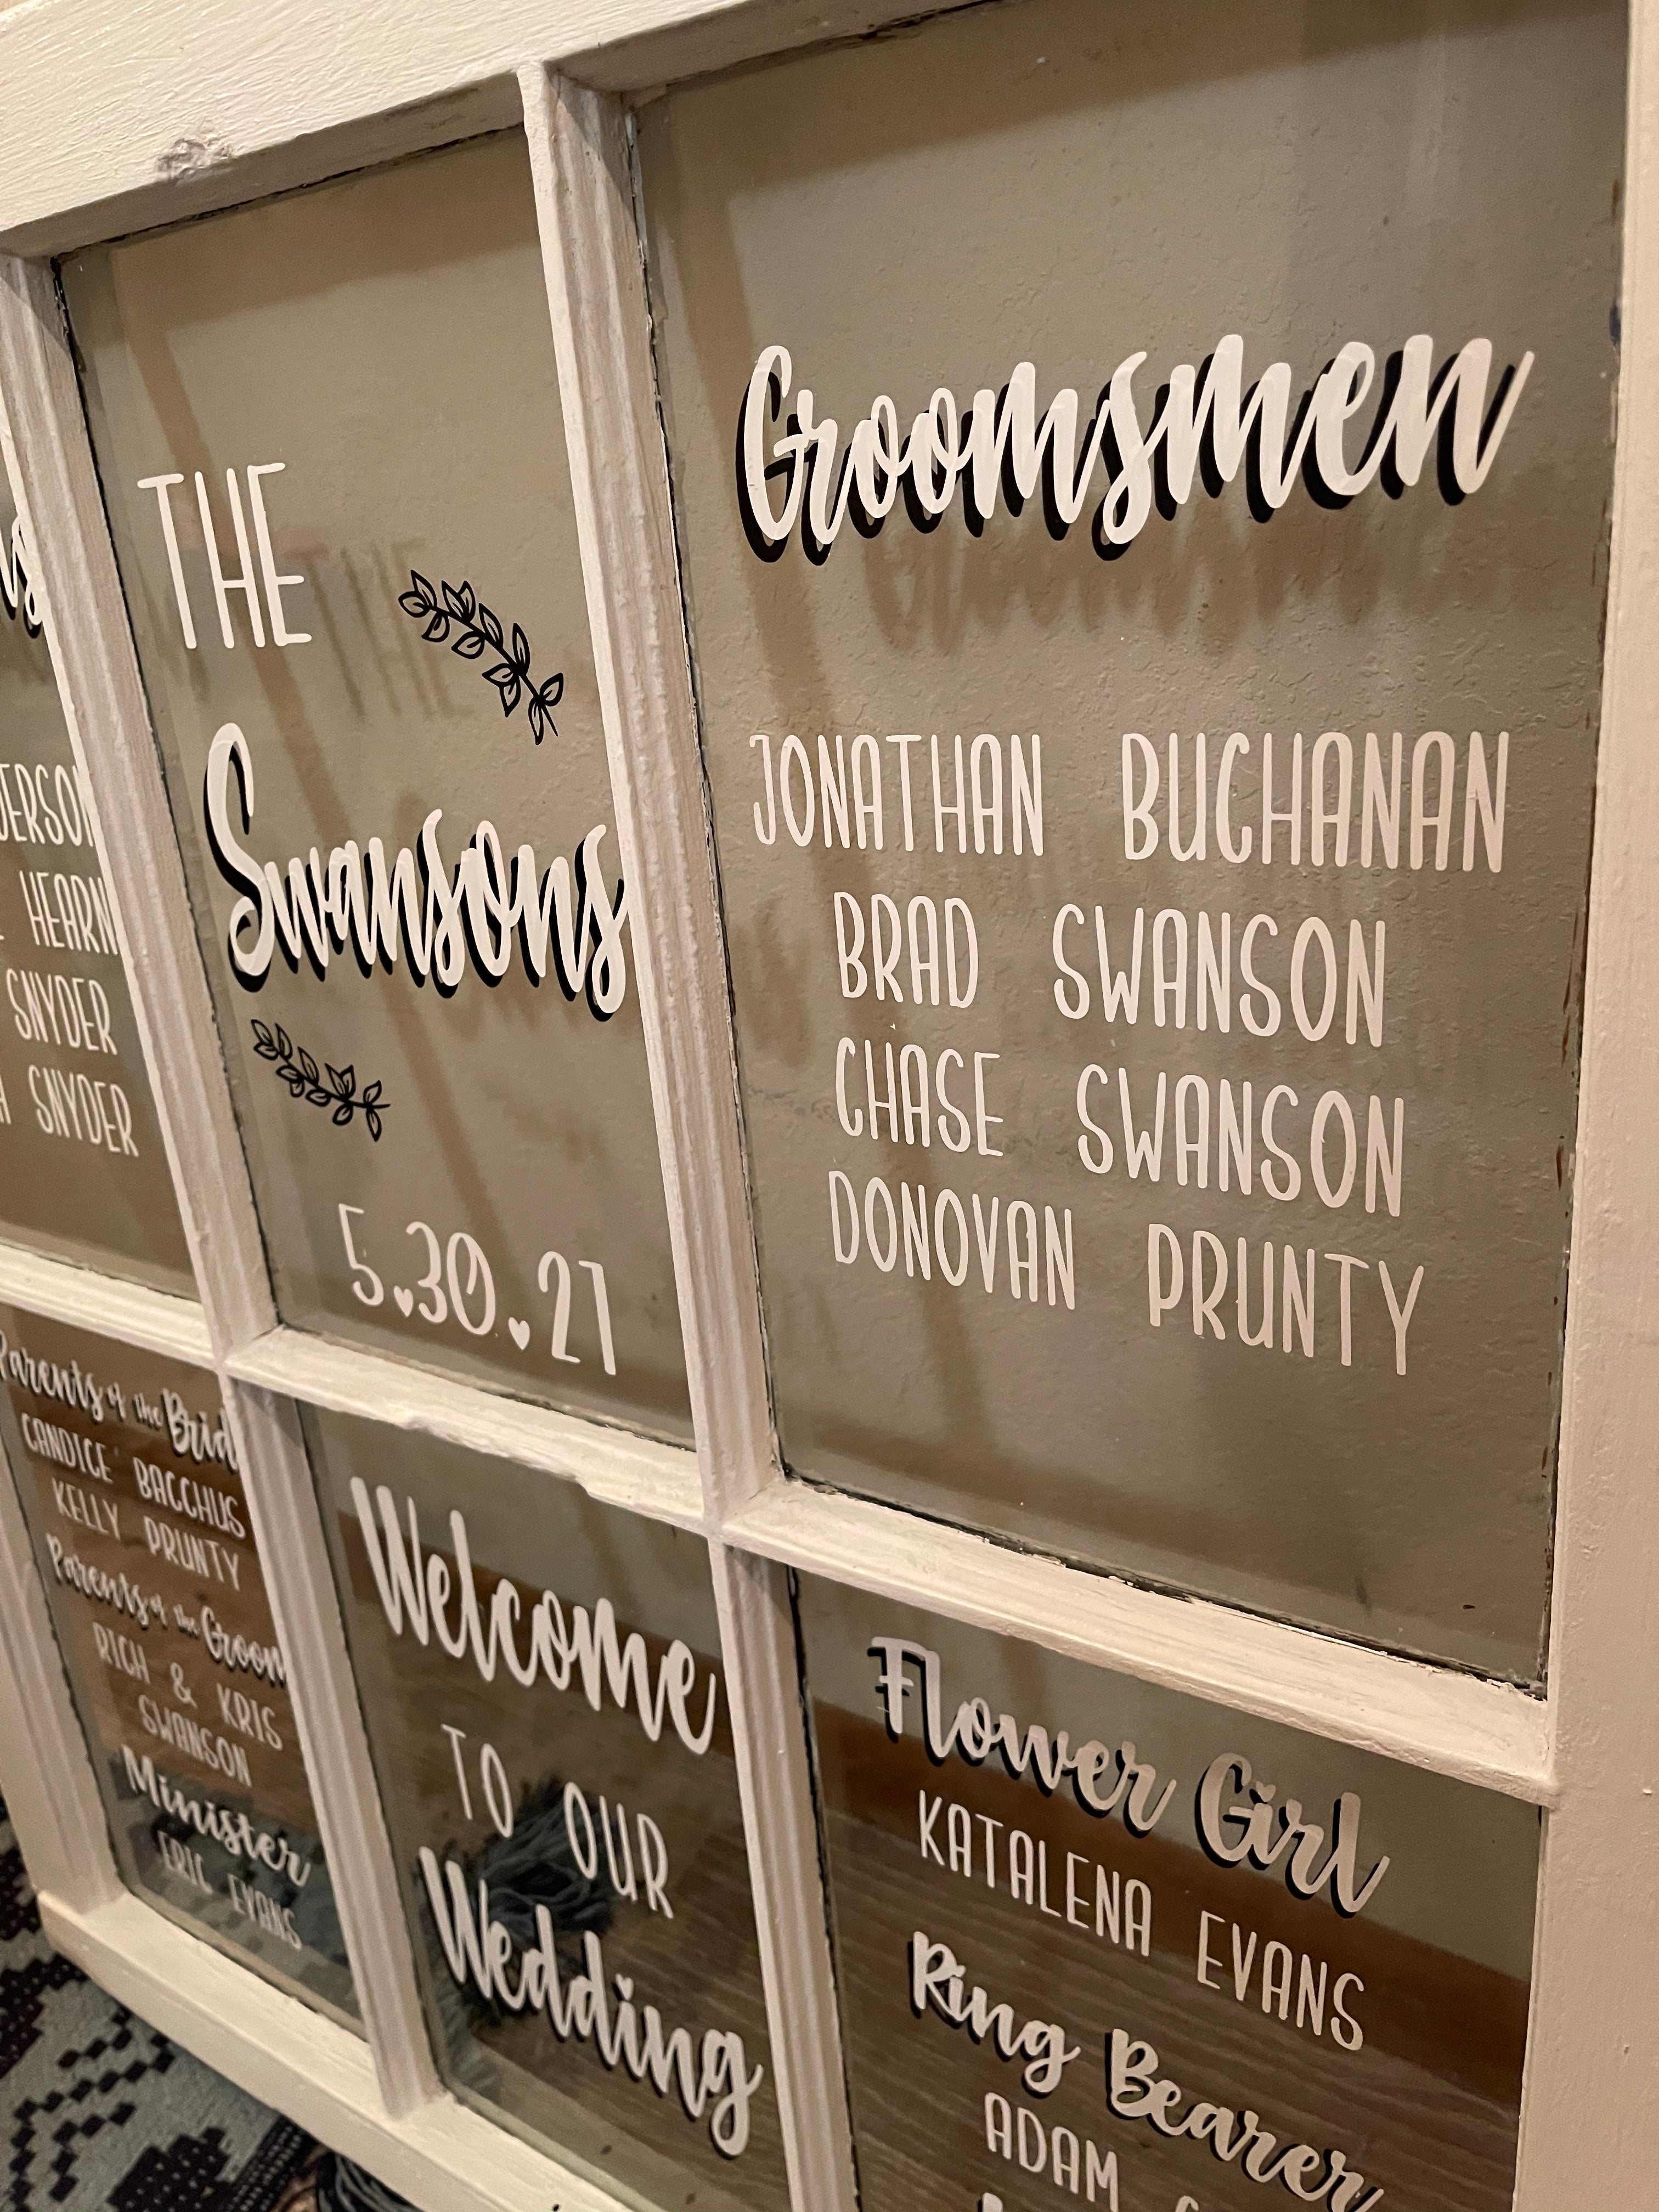 HEARN
SNYDER
SNYDER
THE
Swansons
5.30.21
Groomsmen
JONATHAN BUCHANAN
BRAD SWANSON
CHASE SWANSON
DONOVAN PRUNTY
Parents of the
CANDICE BACCHUS
KELLY PRUNTY
Parents of the Groom
RICH & KRIS
SWANSON
Minister
ERIC EVANS
Welcome
TO OUR
Wedding
Flower Girl
KATALENA EVANS
Ring Bearer
ADAM